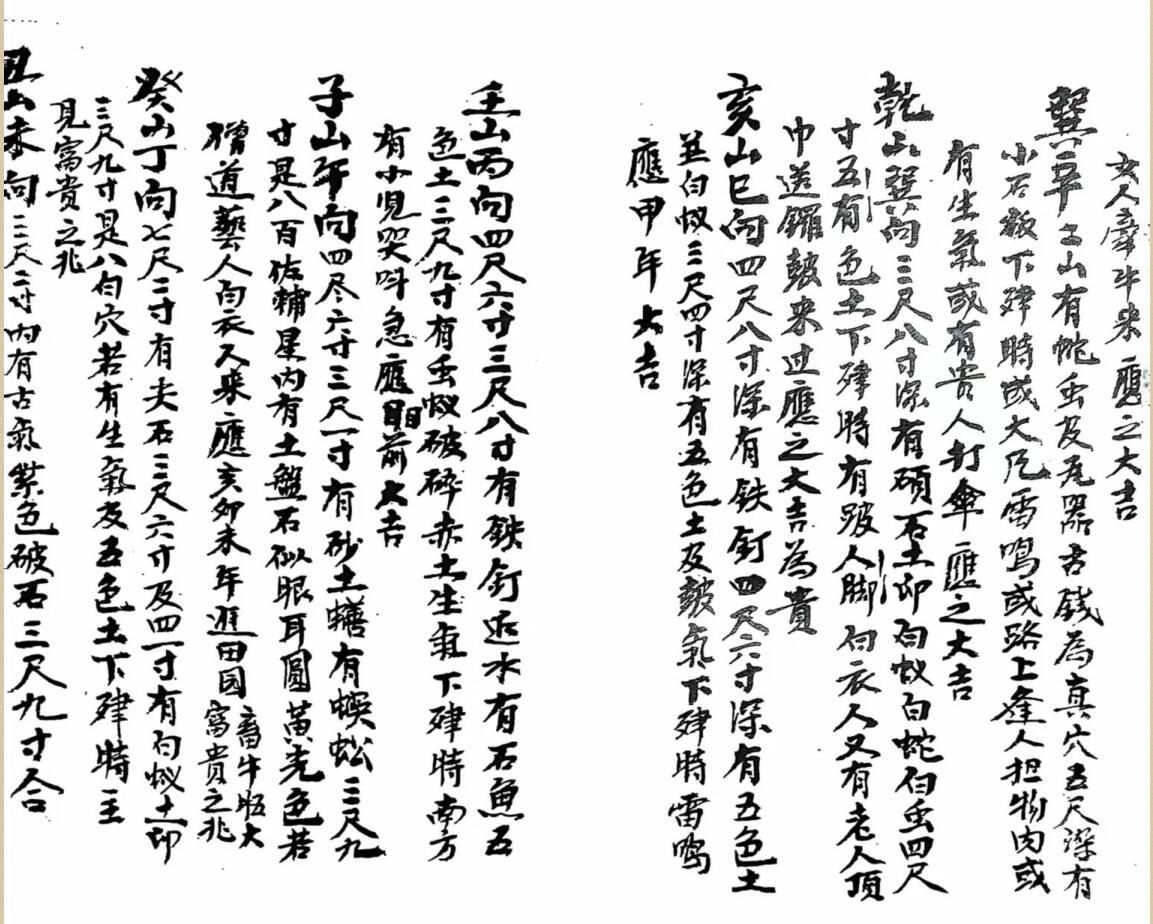 女人牽牛来應之大吉
巽辛山有蛇虫及瓦器古錢為真穴五尺深有
小石緻下肂時或大凡雷鳴或路上逢人担物肉或
有生氣或有贵人打傘應之大吉
乾山巽向三尺八寸深有碩石土卯白蚁白蛇白虫四尺
寸五有色土下肂時有跛人脚白衣人又有老人頂
巾送鑼皷来过應之大吉為貴
亥山巳向四尺八寸深有铁釘四尺六寸深有五色土
并白蚁三尺四寸深有五色土及皷氣下肂時雷鸣
應甲年大吉
壬山丙向四尺六寸三尺八寸有鉄釘近水有石魚五
色土三尺九寸有虫蚁破碎赤土生氣下肂時南方
有小児哭呌急應眼前大吉
子山午向四尽六寸三尺一寸有砂土蟮有蜈蚣三尺九
寸是八百佐輔星内有土盤石似眼耳圓黄光色若
僧道藝人白衣入来應亥卯未年進田园
畜牛旺大
富貴之兆
癸山丁向七尺二寸有夫石三尺六寸及四一寸有白蚁土卯
三尺九寸是八白穴若有生氣及五色土下肂時主
見富貴之兆
丑山未向三尺二寸内有古氣紫色破石三尺九寸合